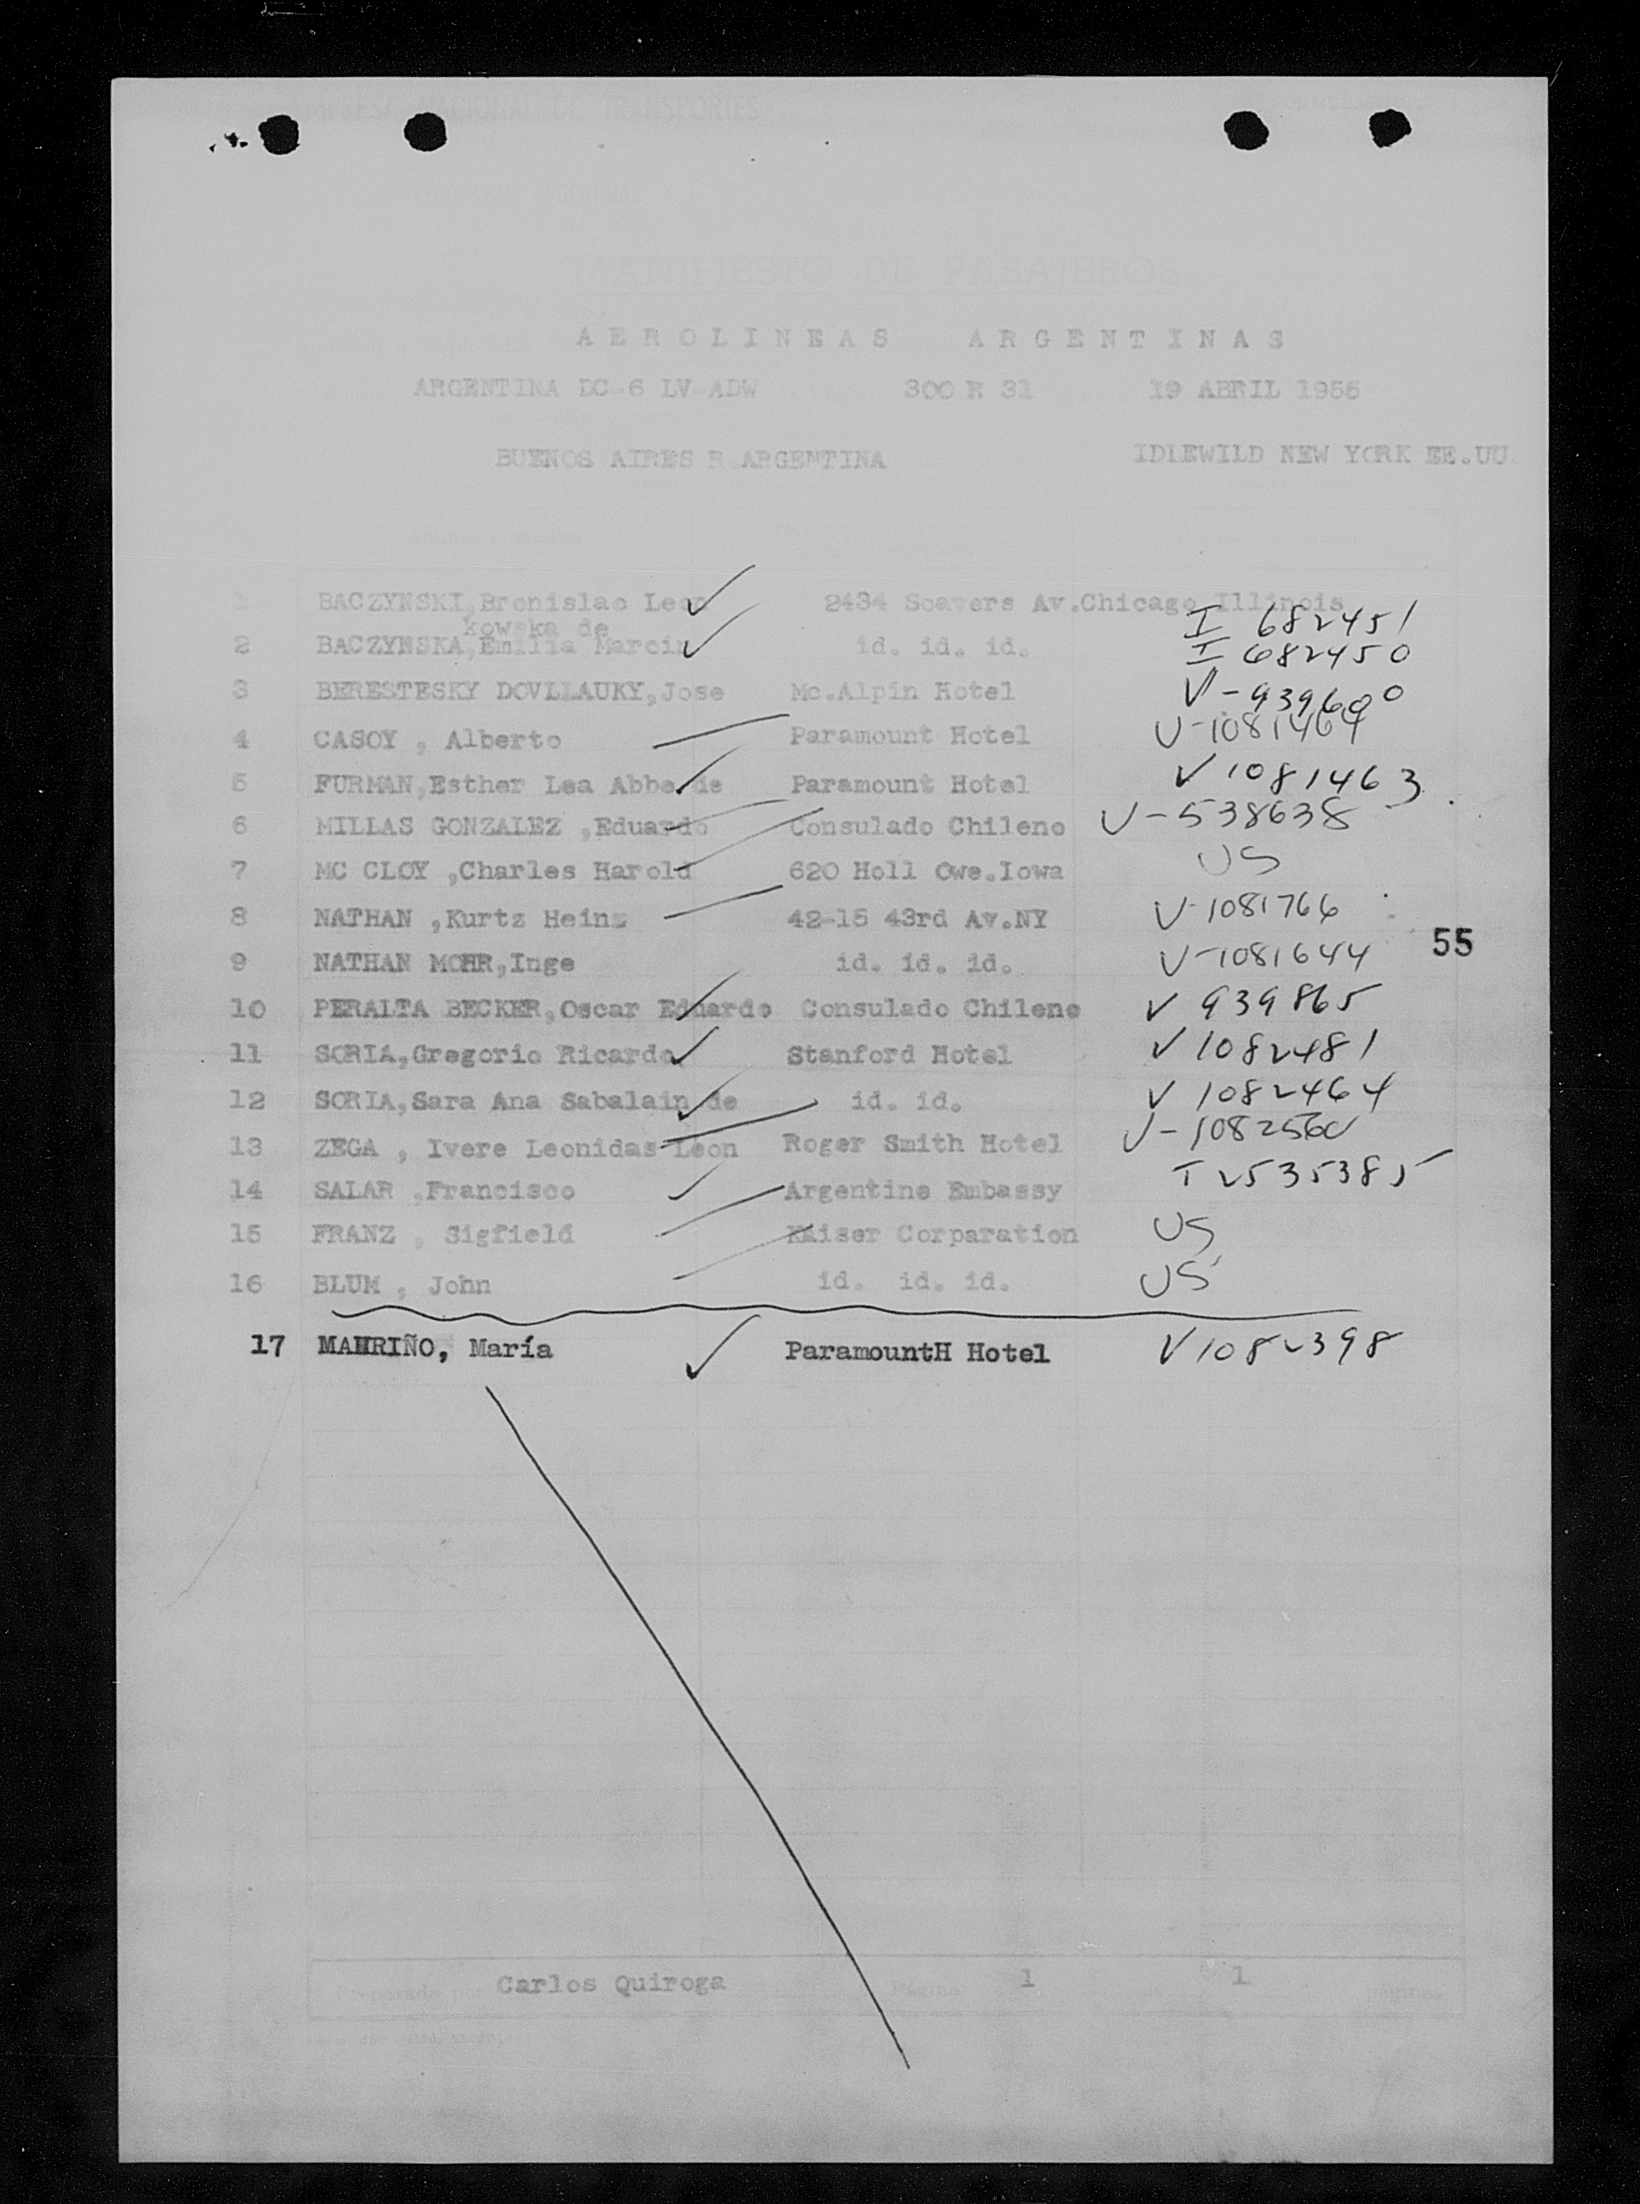 NACIONAL DE TRANSPORTES
MANIFIESTO DE PASAJEROS
AEROLINEAS ARGENTINAS
ARGENTINA DC-6 LV-ADW 300 R 31 19 ABRIL 1955
BUENOS AIRES R.ARGENTINA IDLEWILD NEW YORK EE.UU
BACZYNSKI,Bronislao Leon 2434 Seavers Av.Chicago Illinois I 682451
kowska de
2 BACZYNSKA,Emilia Marcin id. id. id. I 682450
3 BERESTESKY DOVLLAUKY,Jose Mc.Alpin Hotel V-939600
4 CASOY , Alberto Paramount Hotel V-1081464
5 FURMAN,Esther Lea Abbe de Paramount Hotel V 1081463
6 MILLAS GONZALEZ ,Eduardo Consulado Chileno V-538638
7 MC CLOY ,Charles Harold 620 Holl Owe.Iowa US
8 NATHAN ,Kurtz Heinz 42-15 43rd Av.NY V-1081766
55
9 NATHAN MOHR,Inge id. id. id. V-1081644
10 PERALTA BECKER,Oscar Eduardo Consulado Chileno V 939865
11 SORIA,Gregorio Ricardo Stanford Hotel V 1082481
12 SORIA,Sara Ana Sabalain de id. id. V 1082464
13 ZEGA , Ivere Leonidas Leon Roger Smith Hotel V-1082560
14 SALAR ,Francisco Argentine Embassy T 2535385
15 FRANZ , Sigfield Kaiser Corparation US
16 BLUM , John id. id. id. US
17 MAHRIÑO, María ParamountH Hotel V 1082398
Preparado por Carlos Quiroga Página 1 1 páginas